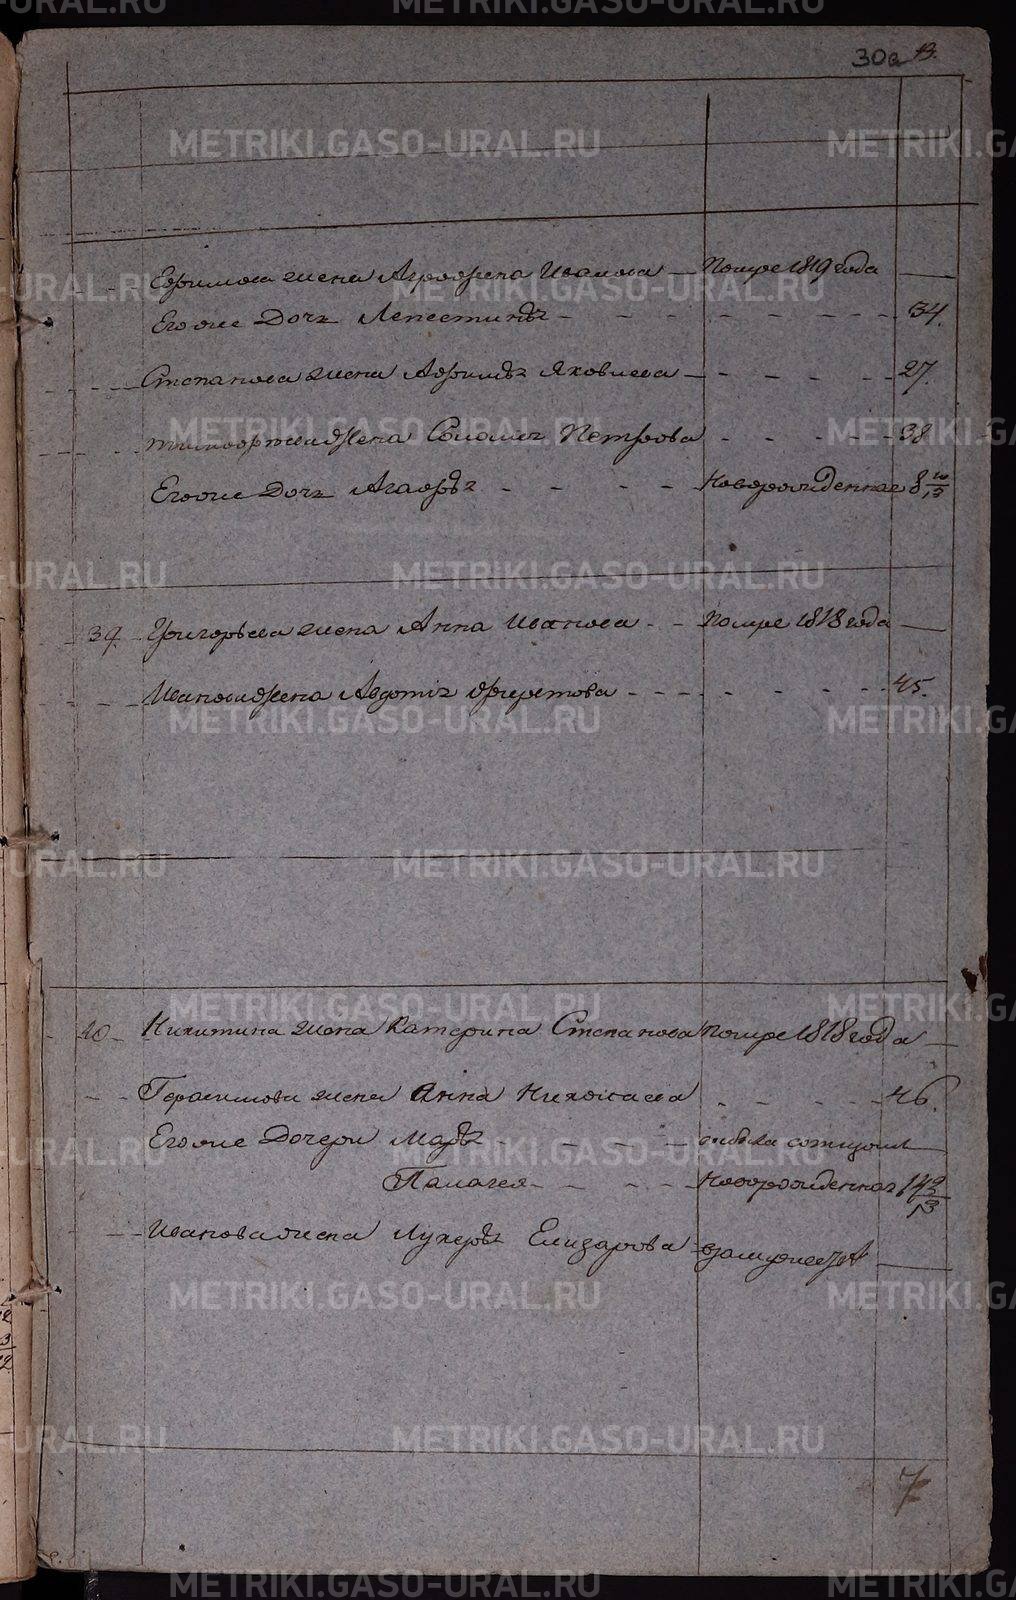 METRIKI.GASO-URAL.RU
30а
Ефимова жена Агрофена Иванова Помре 1819 года
Егоже Дочь 34.
Степанова жена Яковлева 27.
жена Соломия Петрова 38
Егоже Дочь Агафья Новорожденная 8
39. Григорьева жена Анна Иванова Помре 1818 года
Иванова жена Авдотья 45.
40 Никитина жена Катерина Степанова помре 1818 года
Герасимова жена Анна Николаева 46.
Егоже Дочери Марья
Палагея Новорожденная
Иванова жена Лукерья Елизарова взамужества
7